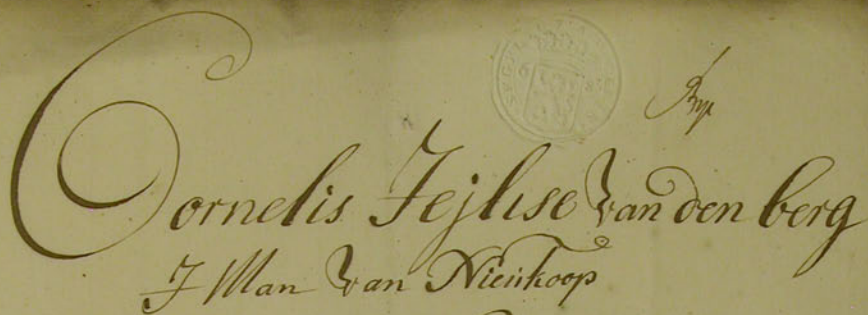 Cornelis Jejlise Van den berg
J Man van Nieukoop